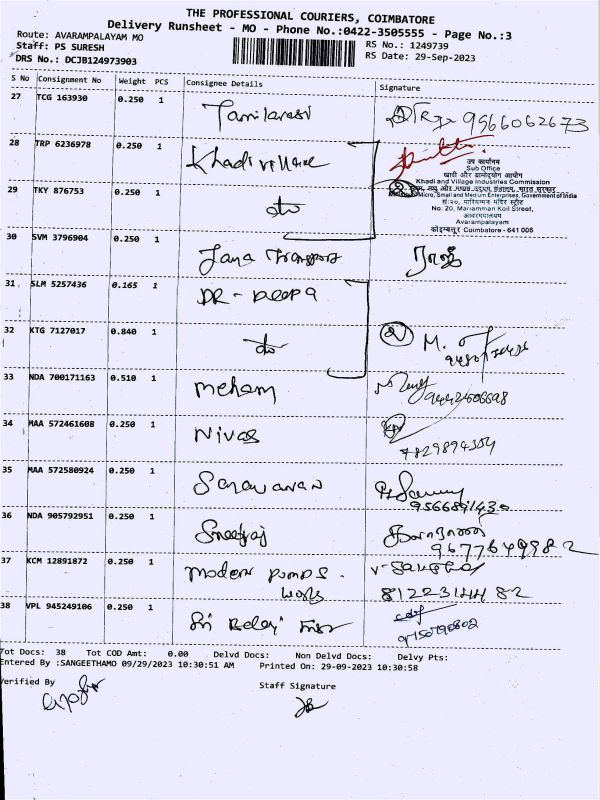 THE PROFESSIONAL COURIERS, COIMBATORE
Delivery Runsheet - MO - Phone No.:0422-3505555 - Page No.:3
Route: AVARAMPALAYAM MO
RS No.: 1249739
Staff: PS SURESH
RS Date: 29-Sep-2023
DRS No.: DCJB124973903
S No Consignment No Weight PCS Consignee Details Signature
27 TCG 163930 0.250 1 Tamilarasi 9566062673
28 TRP 6236978 0.250 1 Khadi village
उप कार्यालय
Sub Office
खादी और ग्रामोद्योग आयोग
Khadi and Village Industries Commission
29 TKY 876753 0.250 1 do
Micro, Small and Medium Enterprises, Government of India
सं:२०, मारियम्मन मंदिर स्ट्रीट
No. 20, Mariamman Koil Street,
आवारमपालयम
Avarampalayam
कोइम्बत्तूर Coimbatore - 641 006
30 SVM 3796904 0.250 1 Jana Transport
31 SLM 5257436 0.165 1 DR - Deepa
32 KTG 7127017 0.840 1 do 2 M.
33 NDA 700171163 0.510 1 meham
34 MAA 572461608 0.250 1 Nivas
7829894354
35 MAA 572580924 0.250 1 Saravanan
9566891430
36 NDA 905792951 0.250 1
9677649982
37 KCM 12891872 0.250 1 modern pumps. V-Sangeetha
works 8122314482
38 VPL 945249106 0.250 1 Sri Balaji
9150790802
Tot Docs: 38 Tot COD Amt: 0.00 Delvd Docs: Non Delvd Docs: Delvy Pts:
Entered By :SANGEETHAMO 09/29/2023 10:30:51 AM Printed On: 29-09-2023 10:30:58
Verified By
Staff Signature